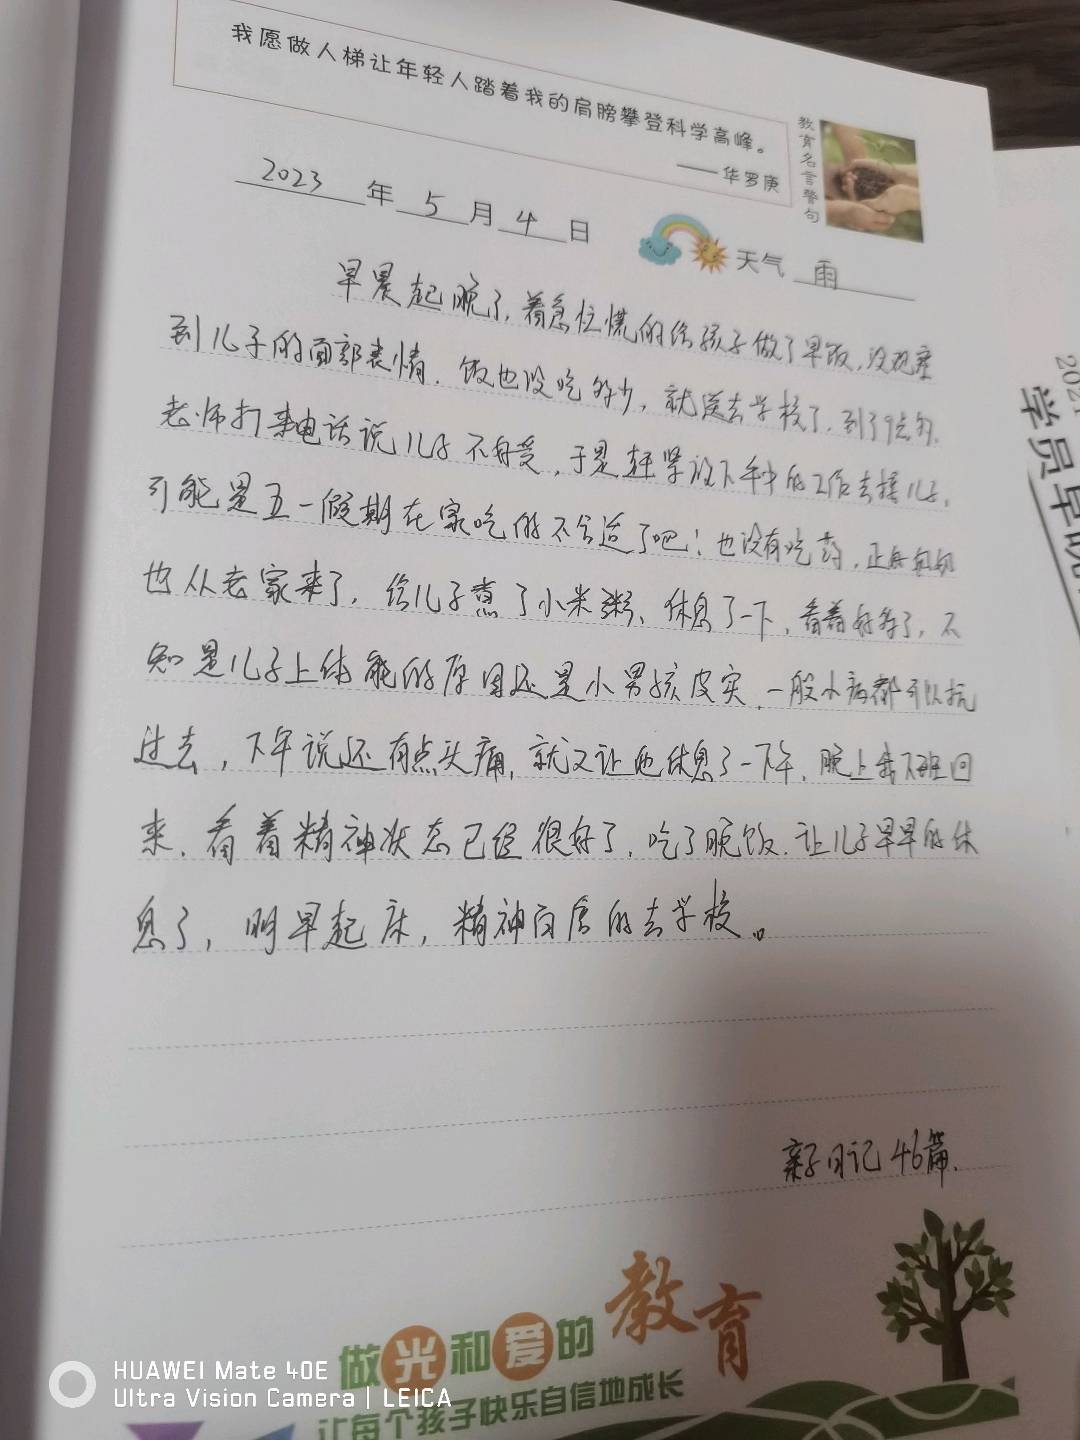 我愿做人梯让年轻人踏着我的肩膀攀登科学高峰。
——华罗庚
教育名言警句
2023年5月4日
天气 雨
早晨起晚了,着急忙慌的给孩子做了早饭,没观察
到儿子的面部表情.饭也没吃多少,就送去学校了.到了9点多.
老师打来电话说儿子不好受,于是赶紧放下手中的工作去接儿子,
可能是五一假期在家吃的不合适了吧!也没有吃药,正好奶奶
也从老家来了,给儿子煮了小米粥、休息了一下,看着好多了,不
知是儿子上体能的原因还是小男孩皮实.一般小病都可以抗
过去,下午说还有点头痛,就又让他休息了一下午.晚上我下班回
来.看着精神状态已经很好了,吃了晚饭.让儿子早早的休
息了,明早起床,精神百倍的去学校。
亲子日记46篇.
做光和爱的教育
让每个孩子快乐自信地成长
202
学员卓
HUAWEI Mate 40E
Ultra Vision Camera | LEICA